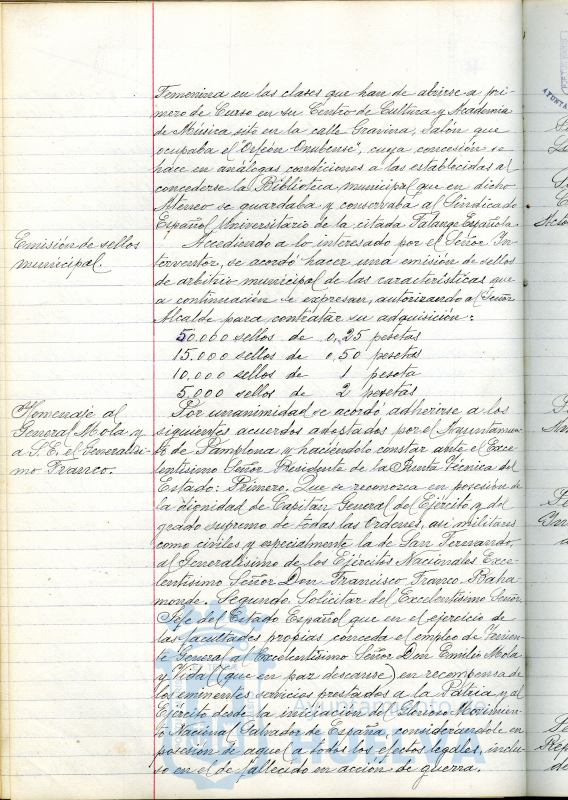 Femenina en las clases que han de abrirse a pri-
mero de Curso en su Centro de Cultura y Academia
de Música, sito en la calle Gravina, Salón que
ocupaba el "Orfeón Onubense", cuya concesión se
hace en análogas condiciones a las establecidas al
concederse la Biblioteca municipal que en dicho
Ateneo se guardaba y conservaba al Sindicado
Español Universitario de la citada Falange Española.
Emisión de sellos
municipal.
Accediendo a lo interesado por el Señor In-
terventor, se acordó hacer una emisión de sellos
de arbitrio municipal de las características que
a continuación se expresan, autorizando al Señor
Alcalde para contratar su adquisición:
50.000 sellos de 0,25 pesetas
15.000 sellos de 0,50 pesetas
10.000 sellos de 1 peseta
5.000 sellos de 2 pesetas
Homenaje al
General Mola y
a S. E. el Generalísi-
mo Franco.
Por unanimidad se acordó adherirse a los
siguientes acuerdos adoptados por el Ayuntamien-
to de Pamplona y haciéndolo constar ante el Exce-
lentísimo Señor Presidente de la Junta Técnica del
Estado: Primero. Que se reconozca en posesión de
la dignidad de Capitán General del Ejército y del
grado supremo de todas las Ordenes, asi militares
como civiles y especialmente la de San Fernando,
al Generalísimo de los Ejércitos Nacionales Exce-
lentísimo Señor Don Francisco Franco Baha-
monde. Segundo. Solicitar del Excelentísimo Señor
Jefe del Estado Español que en el ejercicio de
las facultades propias conceda el empleo de Tenien-
te General al Excelentísimo Señor Don Emilio Mola
y Vidal (que en paz descanse) en recompensa de
los eminentes servicios prestados a la Patria y al
Ejército desde la iniciación del Glorioso Movimien-
to Nacional Salvador de España, considerándole en
posesión de aquel a todos los efectos legales, inclu-
so en el de fallecido en acción de guerra.
Ayuntamiento de
HUELVA